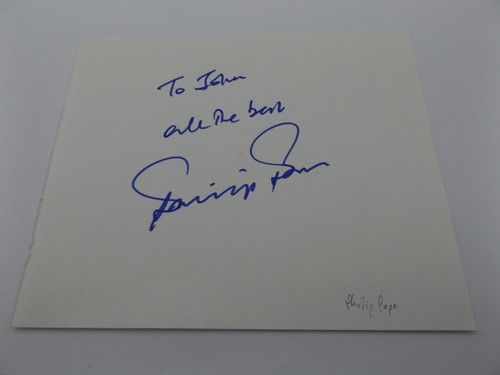 To John
all the best
Philip Pope
Philip Pope